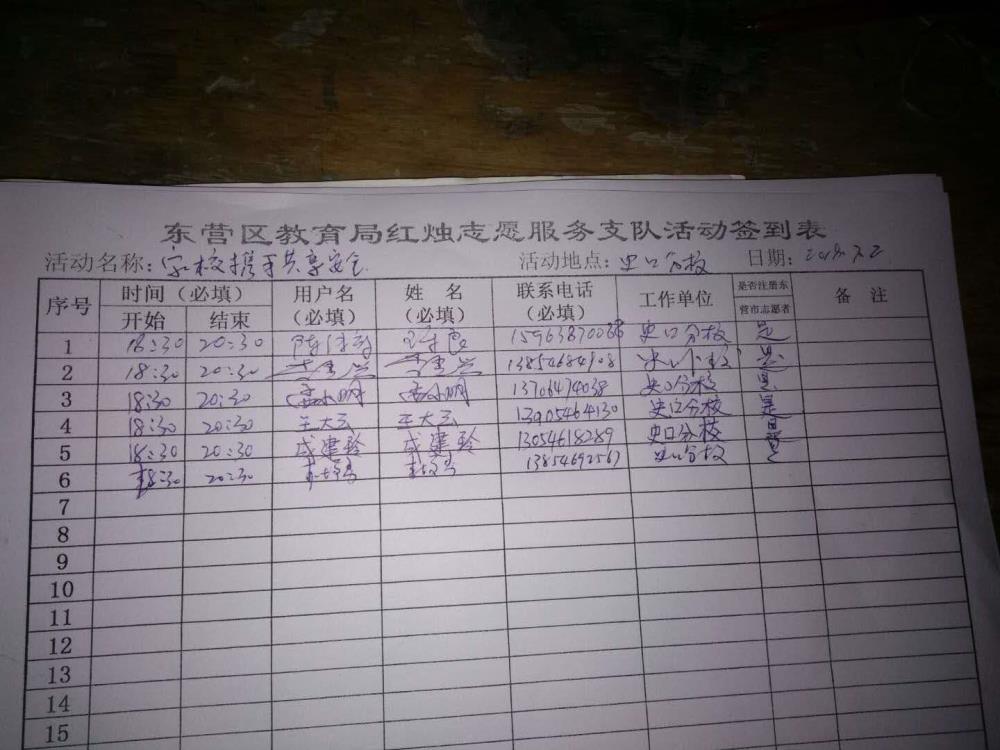 东营区教育局红烛志愿服务支队活动签到表
活动名称：家校携手共享安全 活动地点：史口分校 日期：
序号 时间（必填） 用户名（必填） 姓 名（必填） 联系电话（必填） 工作单位 是否注册东营市志愿者 备 注
开始 结束
1 18:30 20:30 史口分校 是
2 18:30 20:30 13854684908 是
3 18:30 20:30 孟小明 孟小明 13706474038 史口分校 是
4 18:30 20:30 王大云 王大云 13905464130 史口分校 是
5 18:30 20:30 成建玲 成建玲 13054618289 史口分校 是
6 18:30 20:30 13854692567 史口分校 是
7
8
9
10
11
12
13
14
15